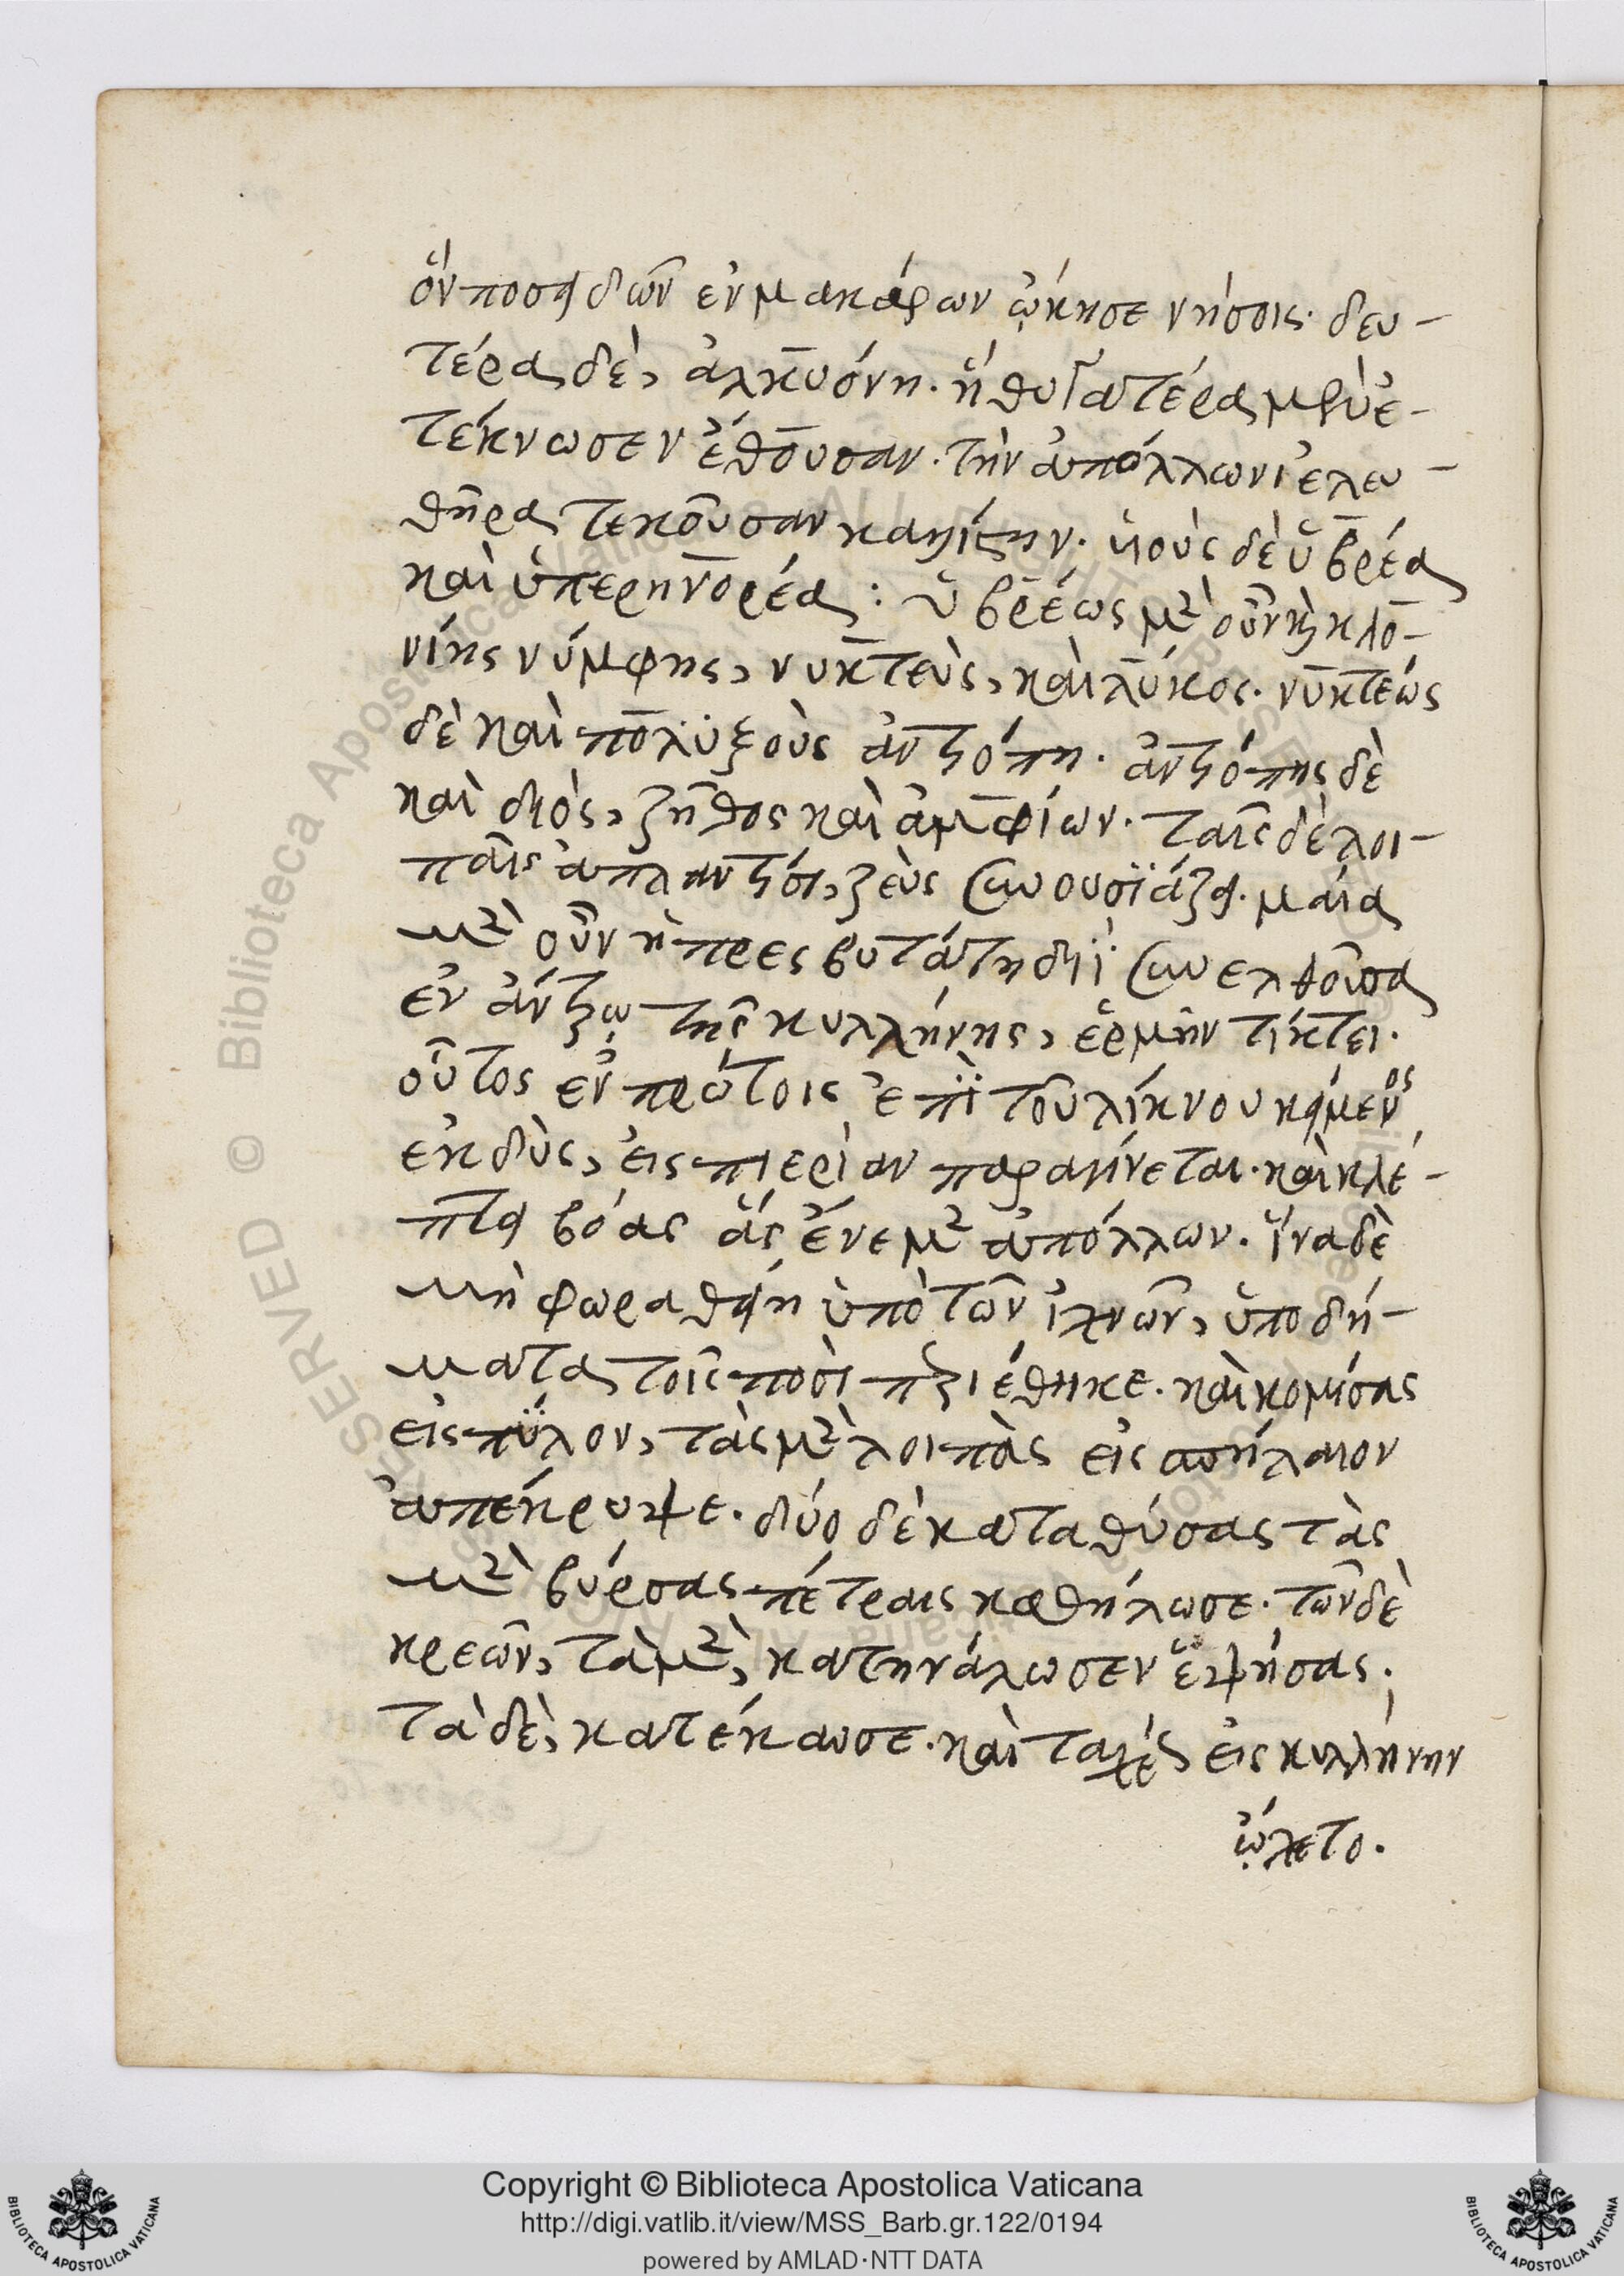 ὃν ποσειδῶν ἐν μακάρων ᾤκησε νήσοις· δευ-
τέρα δὲ, ἀλκυόνη. ἣ θυγατέρα μὲν ἐ-
τέκνωσεν ἔθουσαν. τὴν ἀπόλλωνι ἐλευ-
θῆρα τεκοῦσαν καλλίστην. υἱοὺς δὲ ὑβρέα
καὶ ὑπερηνορέα: ὑβρέως μὲν οὖν καὶ κλο-
νίης νύμφης, νυκτεὺς, καὶ λύκος. νυκτέως
δὲ καὶ πολυξοὺς ἀντιόπη. ἀντιόπης δὲ
καὶ διὸς, ζῆθος καὶ ἀμφίων. ταῖς δὲ λοι-
παῖς ἀτλαντίσι, ζεὺς συνουσϊάζει. μαῖα
μὲν οὖν ἡ πρεσβυτάτη διῒ συνελθοῦσα
ἐν ἄντρῳ τῆς κυλλήνης, ἑρμῆν τίκτει.
οὗτος ἐν πρώτοις ἐπὶ τοῦ λίκνου κείμενος
ἐκδὺς, εἰς πιερίαν παραγίνεται. καὶ κλέ-
πτει βόας ἃς ἔνεμεν ἀπόλλων. ἵνα δὲ
μὴ φωραθείη ὑπὸ τῶν ἰχνῶν, ὑποδή-
ματα τοῖς ποσὶ περιέθηκε. καὶ κομίσας
εἰς πύλον, τὰς μὲν λοιπὰς εἰς σπήλαιον
ἀπέκρυψε. δύο δὲ καταθύσας τὰς
μὲν βύρσας πέτραις καθήλωσε. τῶν δὲ
κρεῶν, τὰ μὲν, κατηνάλωσεν ἑψήσας.
τὰ δὲ, κατέκαυσε. καὶ ταχέως εἰς κυλλήνην
ᾤχετο.
Copyright © Biblioteca Apostolica Vaticana
http://digi.vatlib.it/view/MSS_Barb.gr.122/0194
powered by AMLAD·NTT DATA